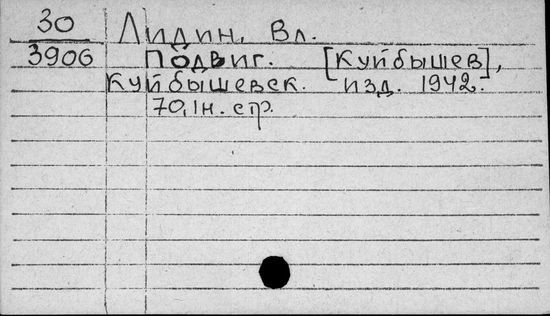 30 Лидин, Вл.
3906 Подвиг. [Куйбышев],
Куйбышевск. изд. 1942.
70,1н. стр.